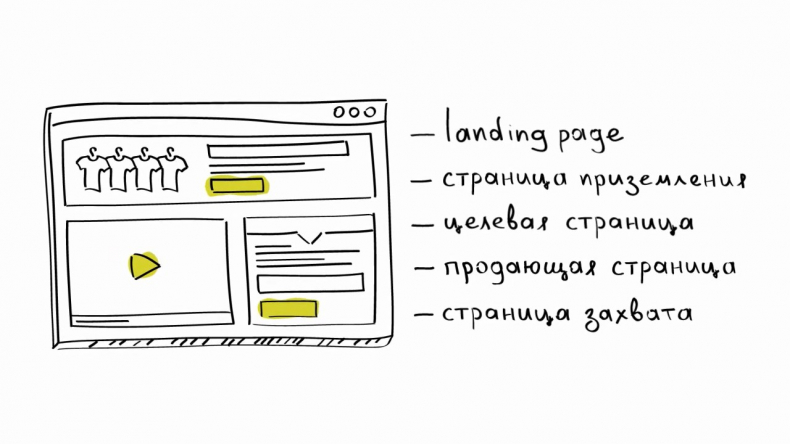 — landing page
— страница приземления
— целевая страница
— продающая страница
— страница захвата